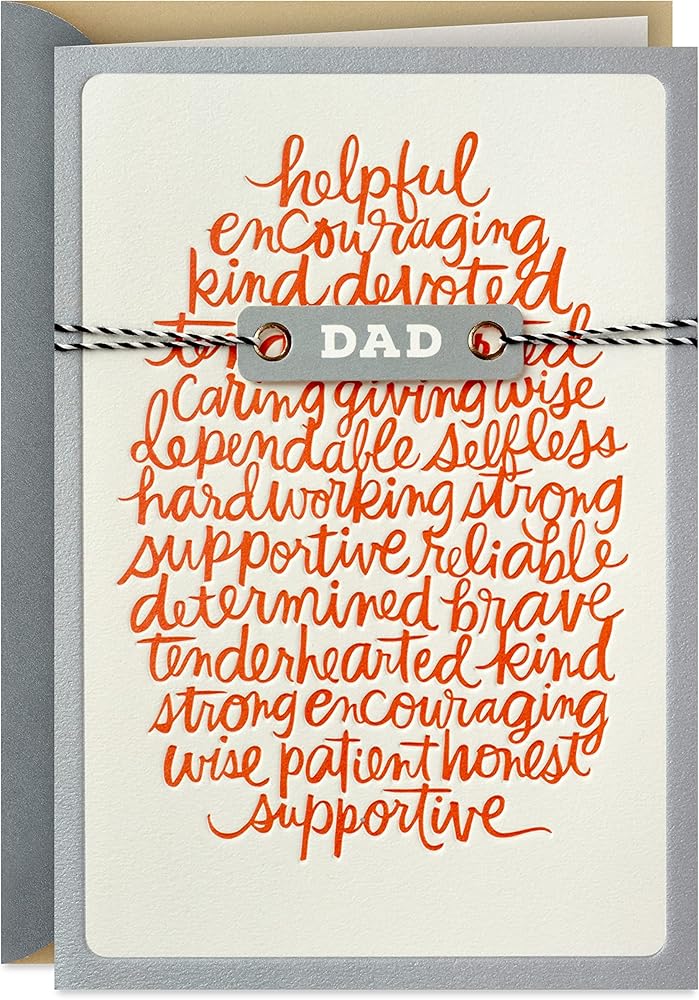 helpful
encouraging
kind devoted
DAD
caring giving wise
dependable selfless
hardworking strong
supportive reliable
determined brave
tenderhearted kind
strong encouraging
wise patient honest
supportive